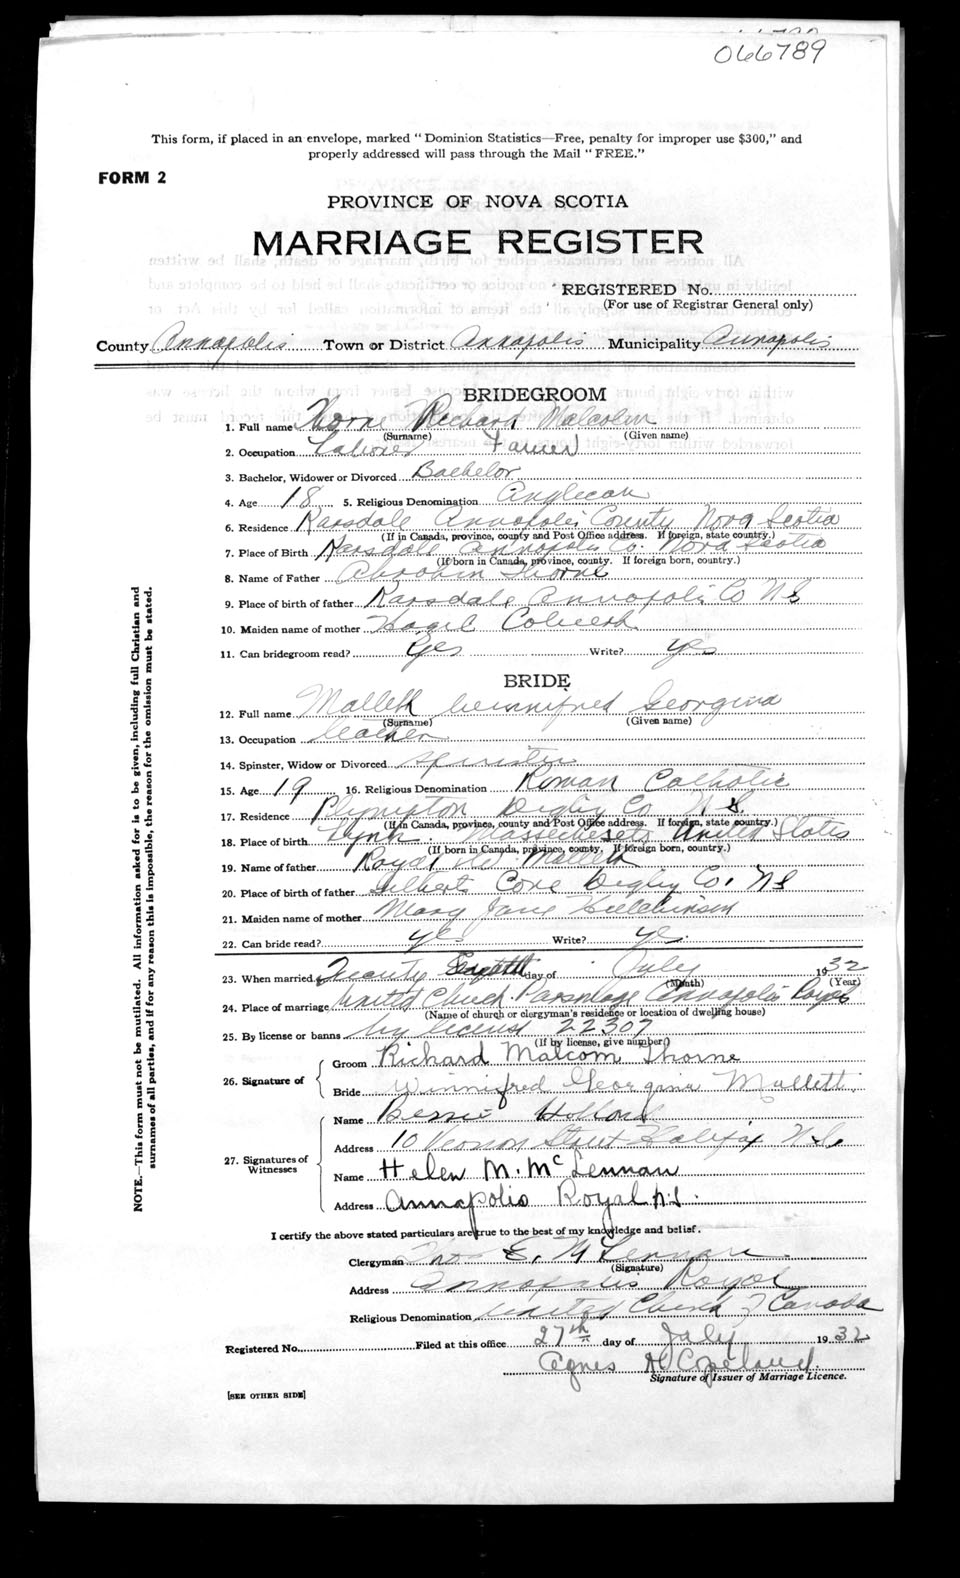 066789
This form, if placed in an envelope, marked “ Dominion Statistics—Free, penalty for improper use $300,” and
properly addressed will pass through the Mail “ FREE.”
FORM 2
PROVINCE OF NOVA SCOTIA
MARRIAGE REGISTER
REGISTERED No.
(For use of Registrar General only)
County Annapolis Town or District Annapolis Municipality Annapolis
BRIDEGROOM
1. Full name Thorne Richard Malcolm
(Surname) (Given name)
2. Occupation Laborer Farmer
3. Bachelor, Widower or Divorced Bachelor
4. Age 18 5. Religious Denomination Anglican
6. Residence Karsdale Annapolis County Nova Scotia
(If in Canada, province, county and Post Office address. If foreign, state country.)
7. Place of Birth Karsdale Annapolis Co. Nova Scotia
(If born in Canada, province, county. If foreign born, country.)
8. Name of Father Thorne
9. Place of birth of father Karsdale Annapolis Co NS
10. Maiden name of mother
11. Can bridegroom read? Yes Write? yes
BRIDE
12. Full name Mallett Winnifred Georgina
(Surname) (Given name)
13. Occupation
14. Spinster, Widow or Divorced Spinster
15. Age 19 16. Religious Denomination Roman Catholic
17. Residence Plympton Digby Co N.S.
(If in Canada, province, county and Post Office address. If foreign, state country.)
18. Place of birth Lynn Massachusets United States
(If born in Canada, province, county. If foreign born, country.)
19. Name of father Mallett
20. Place of birth of father Gilberts Cove Digby Co. NS
21. Maiden name of mother Mary Jane Hutchinson
22. Can bride read? yes Write? yes
23. When married Twenty day of July 1932
(Month) (Year)
24. Place of marriage United Church Parsonage Annapolis Royal
(Name of church or clergyman's residence or location of dwelling house)
25. By license or banns by license 22307
(If by license, give number)
26. Signature of
Groom Richard Malcom Thorne
Bride Winnifred Georgina Mallett
27. Signatures of Witnesses
Name Bessie Holland
Address 10 Vernon Street Halifax N.S.
Name Helen M. McLennan
Address Annapolis Royal N.S.
I certify the above stated particulars are true to the best of my knowledge and belief.
Clergyman E. McLennan
(Signature)
Address Annapolis Royal
Religious Denomination United Church of Canada
Registered No. Filed at this office 27th day of July 1932
Agnes H Copeland
Signature of Issuer of Marriage Licence.
[SEE OTHER SIDE]
NOTE.—This form must not be mutilated. All information asked for is to be given, including full Christian and
surnames of all parties, and if for any reason this is impossible, the reason for the omission must be stated.